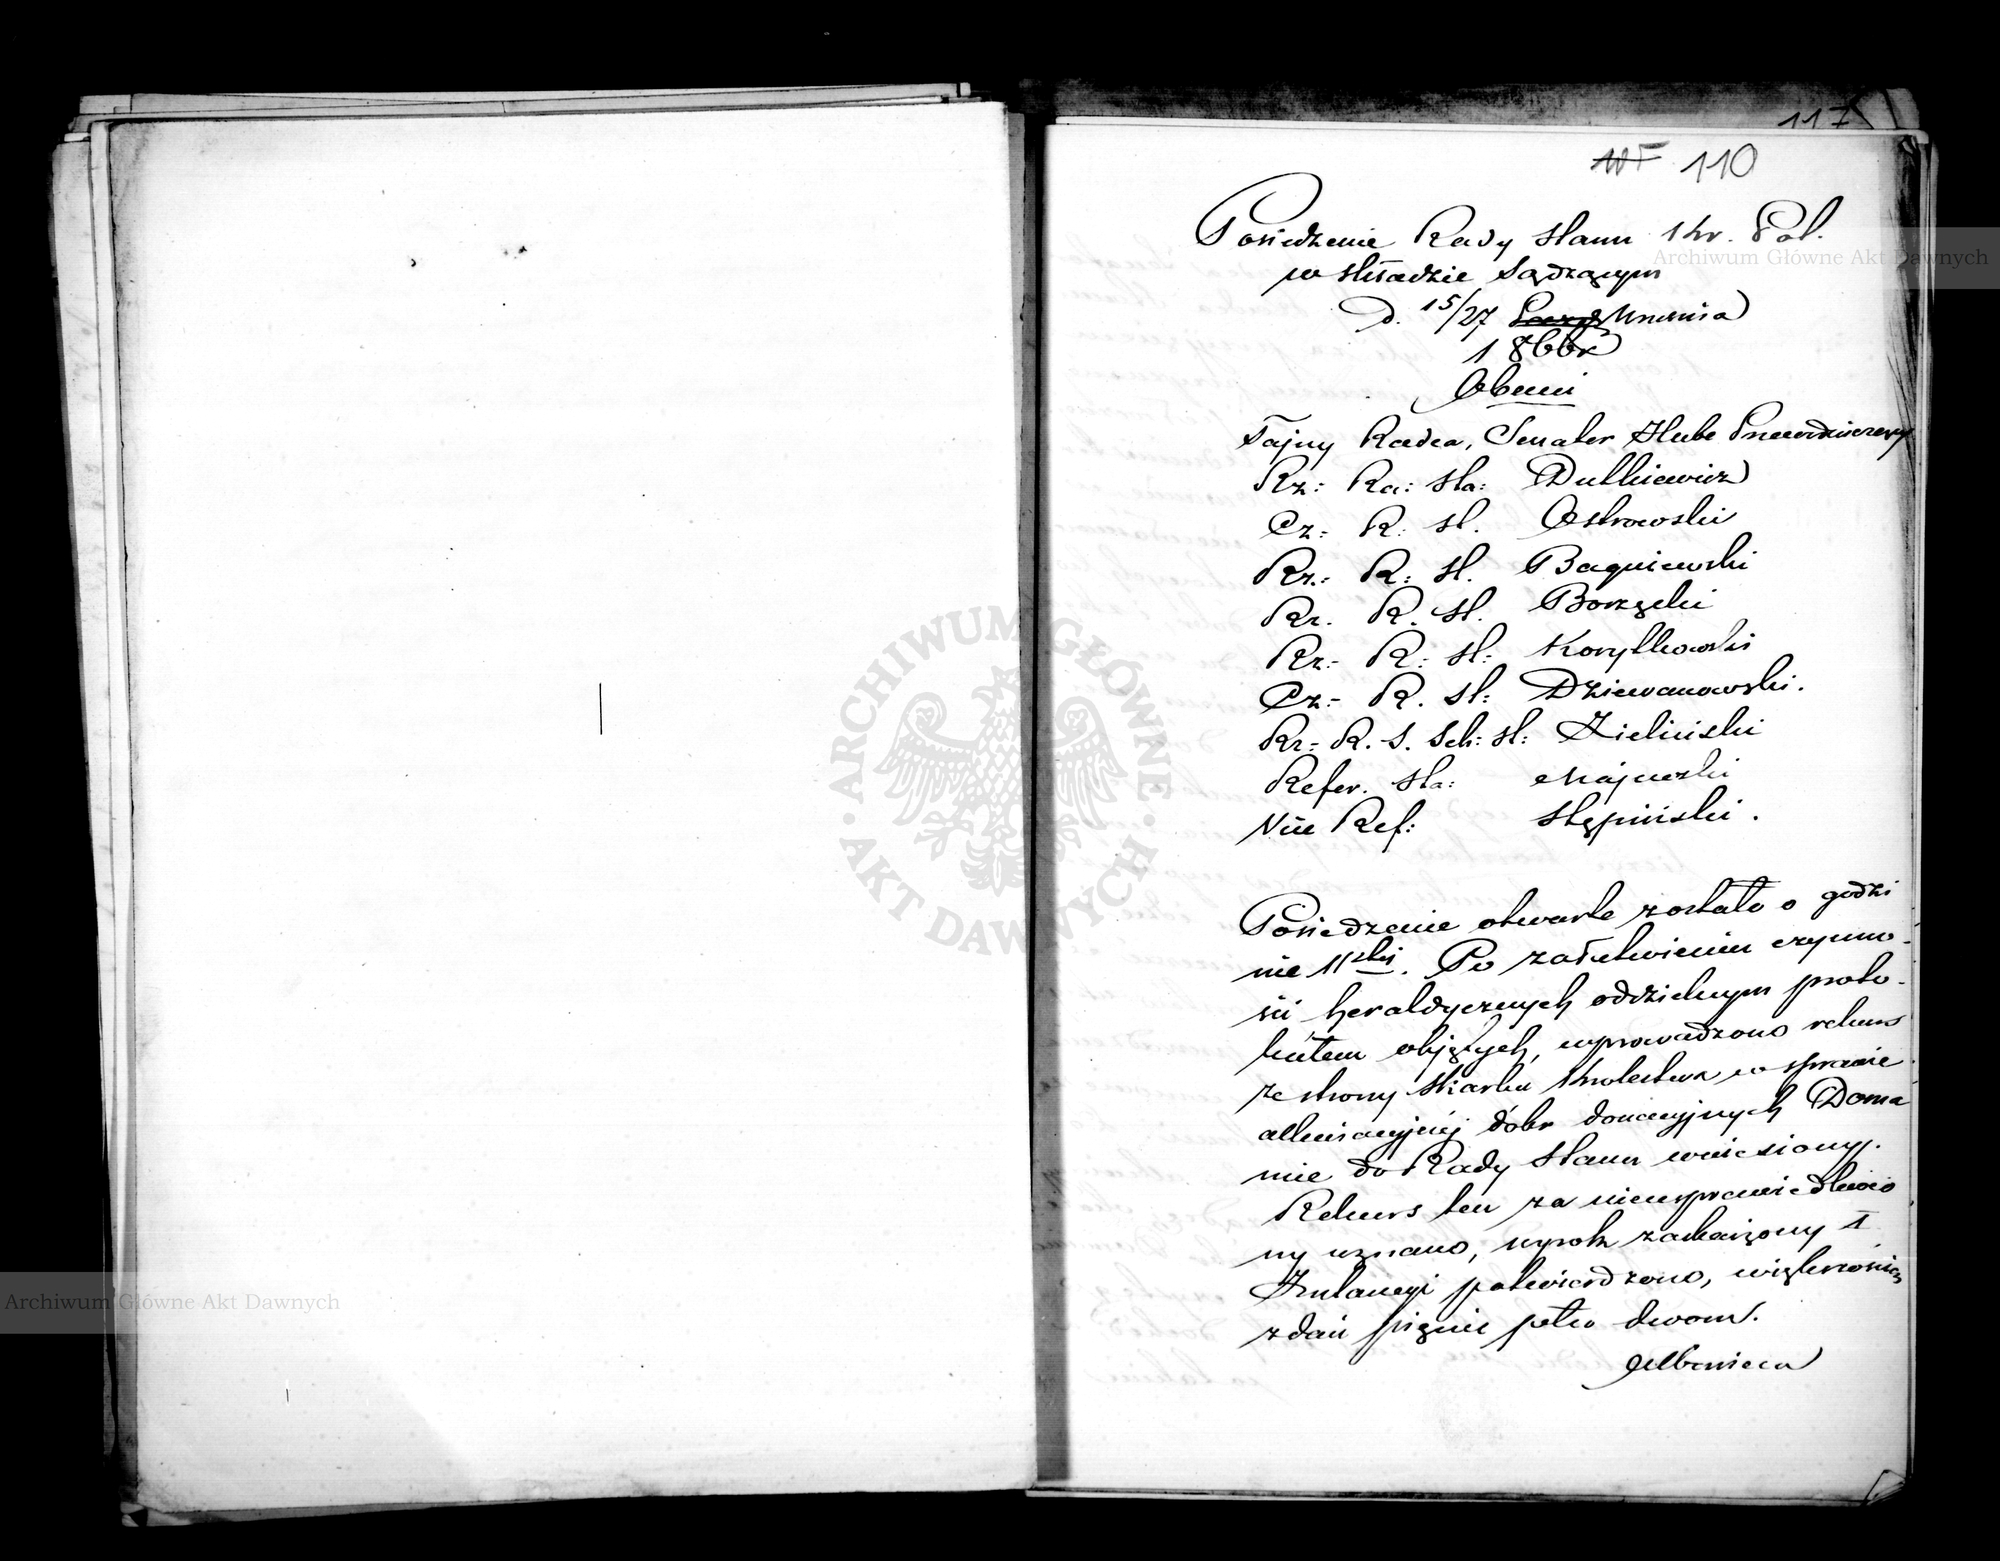 117
110
Posiedzenie Rady Stanu Kr. Pol.
w składzie Sądzącym
D. 15/27 Kwietnia
1866 r
Obecni
Tajny Radca, Senator Hube Prezydujący
Rz: Ra: Sta: Dutkiewicz
Cz: R: St. Ostrowski
Rz: R: St. Bagniewski
Rz. R. St. Borzęcki
Rz: R: St: Korytkowski
Cz: R. St: Dziewanowski.
Rz: R. S. Sek: St: Zieliński
Refer. Sta: Majewski
Vice Ref: Stępiński.
Posiedzenie otwarte zostało o godzi
nie 11stej. Po załatwieniu czynno-
ści heraldycznych oddzielnym proto-
kółem objętych, wprowadzono rekurs
ze strony Skarbu Królestwa w sprawie
donacyjnych
do Rady Stanu wniesiony.
Rekurs ten za niesprawiedliwio
ny uznano, wyrok zaskarżony I
Instancyi potwierdzono, większością
zdań pięciu pko dwom.
Archiwum Główne Akt Dawnych
Archiwum Główne Akt Dawnych
ARCHIWUM GŁÓWNE AKT DAWNYCH